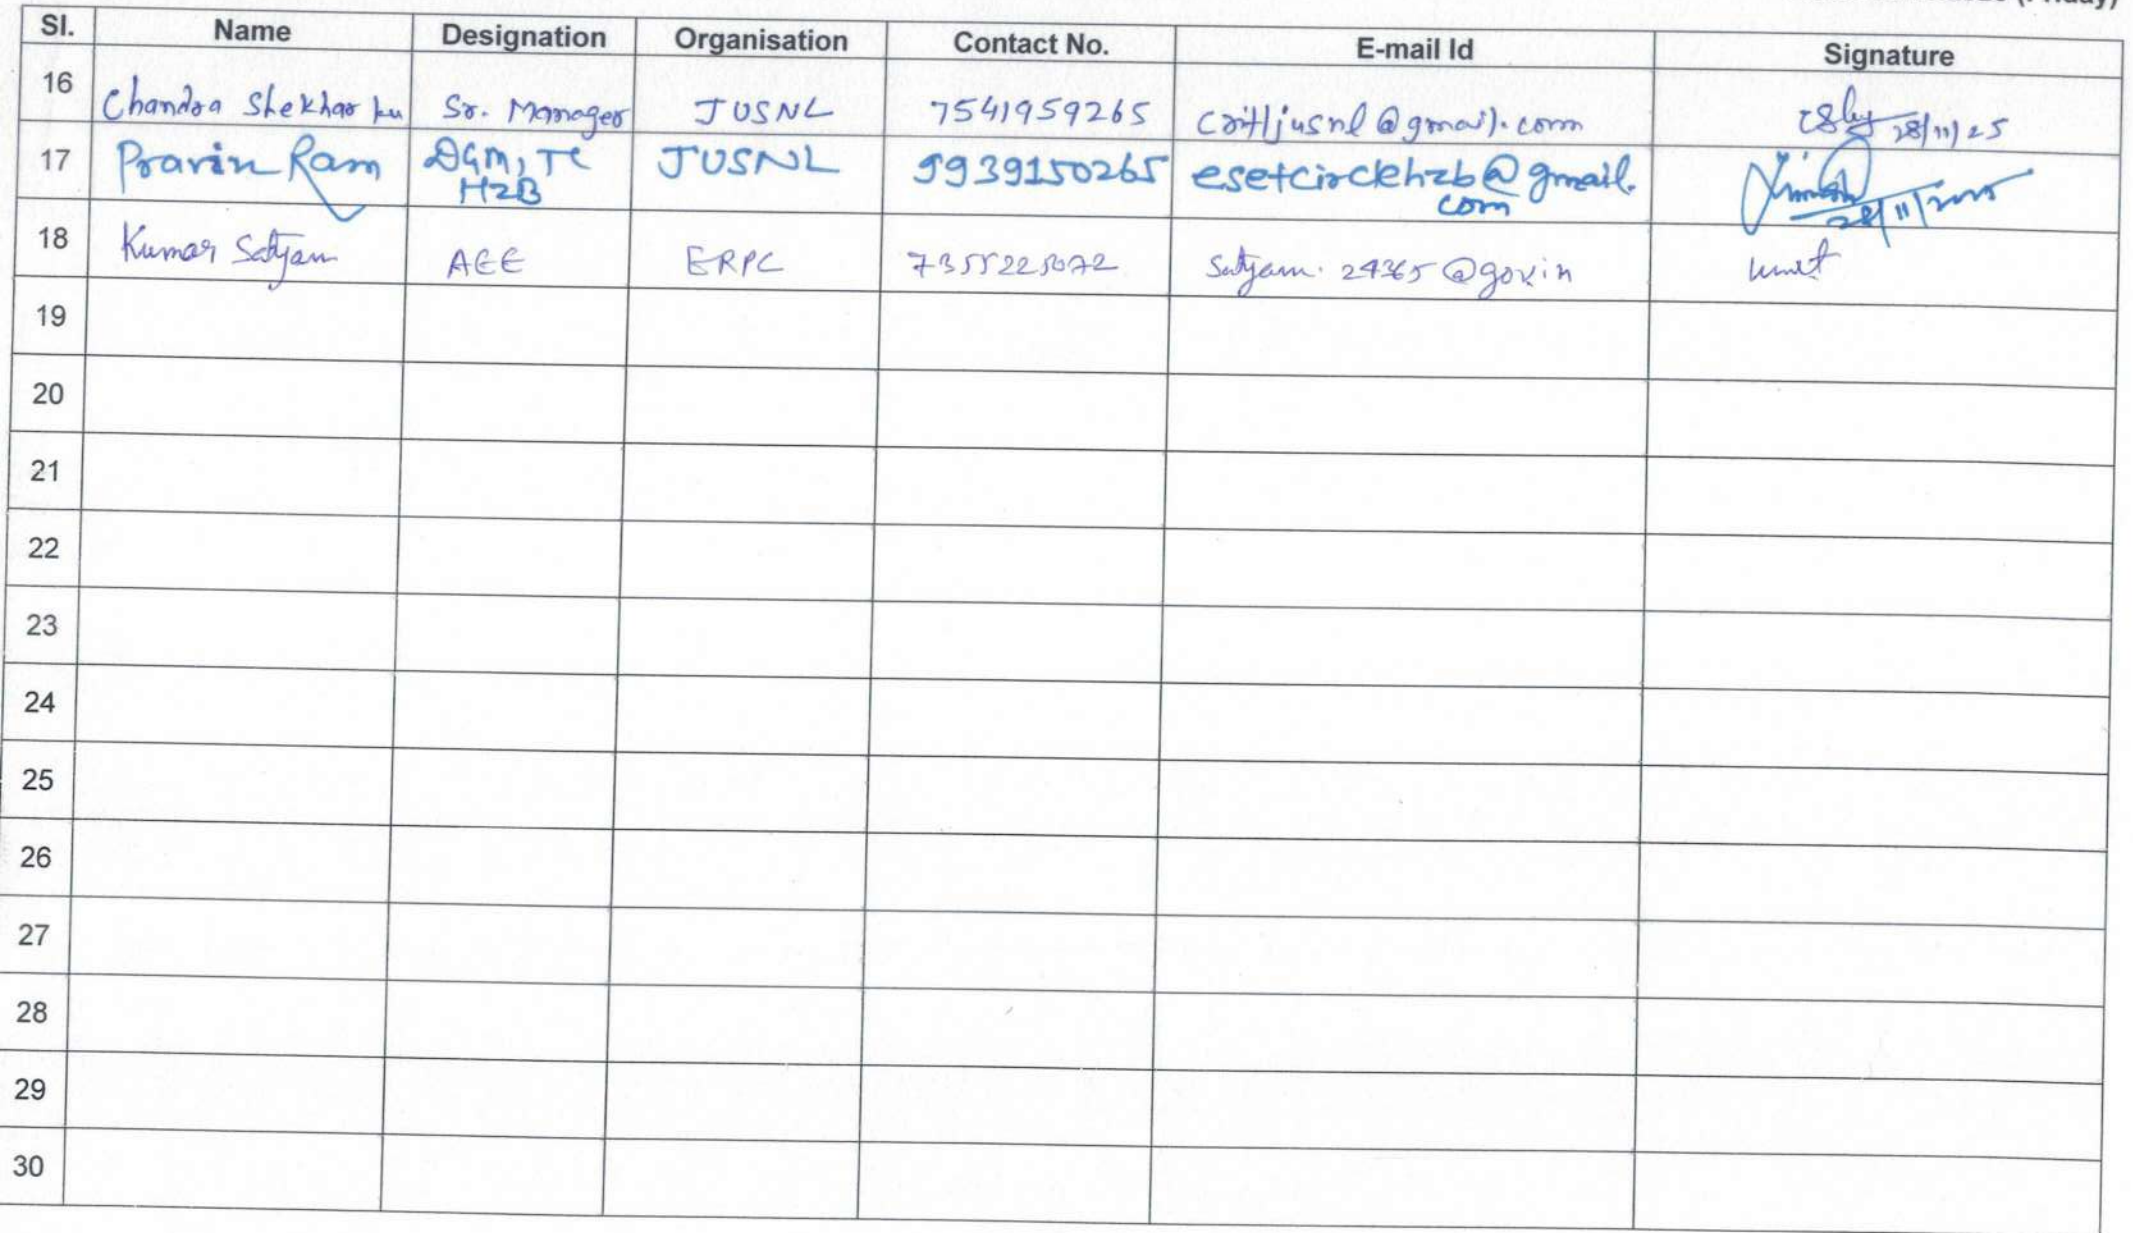 (Friday)
Sl. Name Designation Organisation Contact No. E-mail Id Signature
16 Chandra Shekhar ku Sr. Manager JUSNL 7541959265 critljusnl@gmail.com 28/11/25
17 Pravin Ram DGM, TC JUSNL 9939150265 esetcirclehzb@gmail.
HZB com 28/11/2025
18 Kumar Satyam AEE ERPC Satyam.
19
20
21
22
23
24
25
26
27
28
29
30